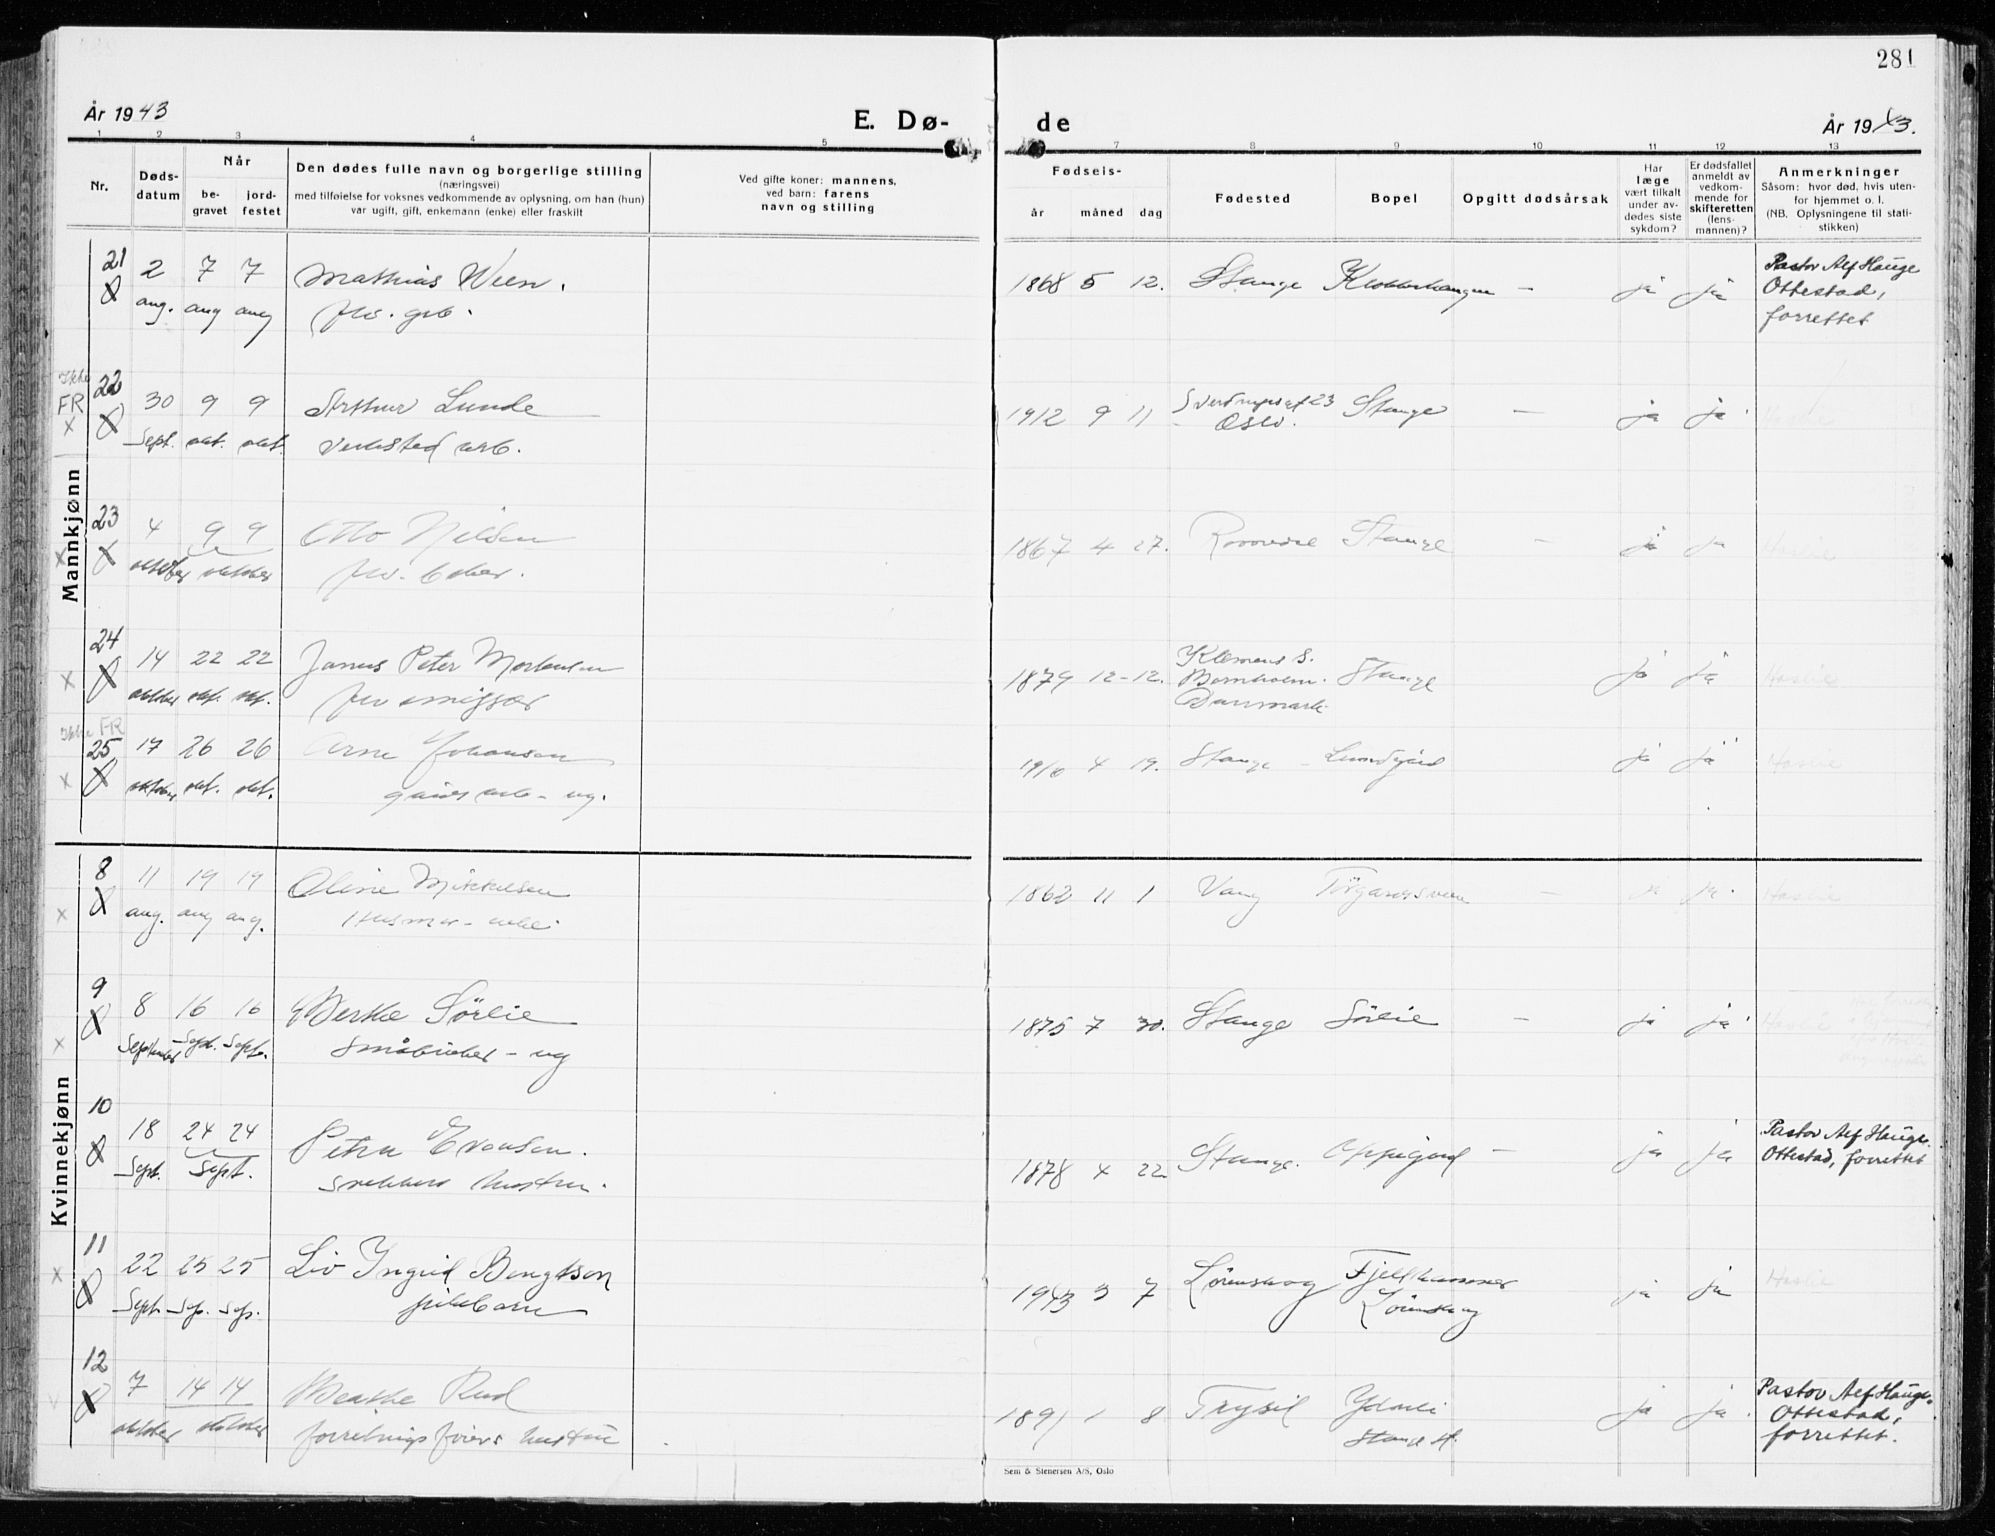 281
År 1943
E. Dø-
de
År 1943.
1 2 3 4 5
7 8 9 10 11 12 13
Nr.
Døds-
datum
Når
be-
gravet
jord-
festet
Den dødes fulle navn og borgerlige stilling
(næringsvei)
med tilføielse for voksnes vedkommende av oplysning, om han (hun)
var ugift, gift, enkemann (enke) eller fraskilt
Ved gifte koner: mannens,
ved barn: farens
navn og stilling
Fødseis-
år måned dag
Fødested
Bopel
Opgitt dødsårsak
Har
læge
vært tilkalt
under av-
dødes siste
sykdom?
Er dødsfallet
anmeldt av
vedkom-
mende for
skifteretten
(lens-
mannen)?
Anmerkninger
Såsom: hvor død, hvis uten-
for hjemmet o. l.
(NB. Oplysningene til stati-
stikken)
Mannkjønn
21 2 7 7 Mathias Wien.
aug. aug aug
1868 5 12. Stange – ja ja
Pastor Alf Hauge
Ottestad,
forrettet
Ikke
FR
22 30 9 9 Arthur Lunde
Sept. okt. okt. verksted arb.
1912 9 11 23 Stange – ja ja
Oslo.
Haslie
23 4 9 9 Otto Nilsen
oktober oktober
1867 4 27. Stange – ja ja Haslie
24 14 22 22 Janus Peter Mortensen
oktober okt. okt.
1879 12 - 12. Klemens S.
Bornholm.
Danmark.
Stange ja ja Haslie
Ikke FR
25 17 26 26 Arne Johansen
oktober okt. okt. ug.
1910 4 19. Stange – ja ja Haslie
Kvinnekjønn
8 11 19 19 Oline Mikkelsen
aug. aug aug.
1862 11 1 Vang – ja ja. Haslie
9 8 16 16 Berthe Sörlie
September Sept. Sept. småbruker - ug
1875 7 30. Stange Sörlie – ja ja Haslie
10 18 24 24 Petra Evensen.
Sept. Sept. snekkers hustru.
1878 4 22 Stange. – ja ja
Pastor Alf Hauge.
Ottestad, forrettet
11 22 25 25 Liv Ingrid Bengtson
Sept. Sep. Sep. pikebarn
1943 3 7 Lörenskog Fjellhammer
Lörenskog
ja ja Haslie
12 7 14 14 Rud
oktober oktober forretningsförers hustru
1891 1 8 Trysil
Stange st.
ja ja.
Pastor Alf Hauge.
Ottestad,
forrettet.
Sem & Stenersen A/S, Oslo